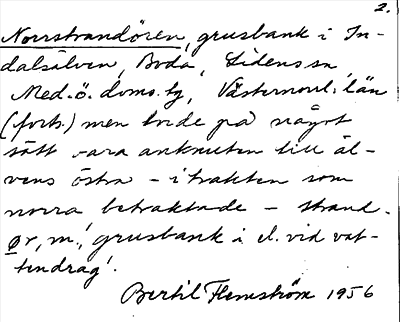 2.
Norrstrandören, grusbank i In-
dalsälven, Boda, Lidens sn,
Med. ö. doms. tg, Västernorrl. län
(forts.) men torde på något
sätt vara anknuten till äl-
vens östra – i trakten som
norra betraktade – strand.
ør, m., 'grusbank i el. vid vat-
tendrag'.
Bertil Flemström 1956